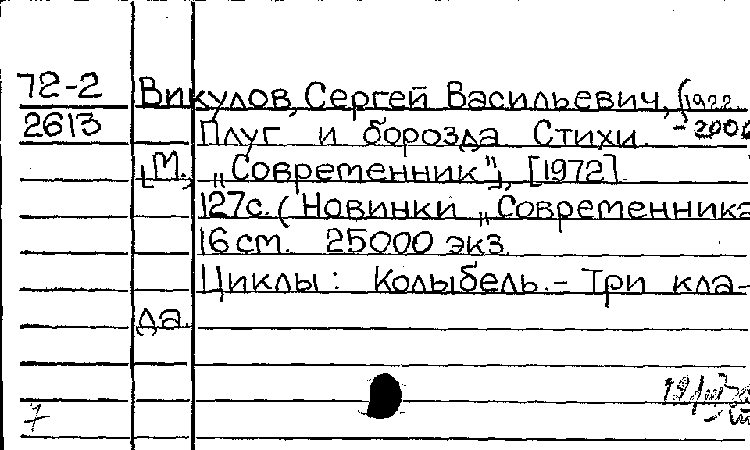 72-2 Викулов, Сергей Васильевич, (1922
2613 Плуг и борозда Стихи. - 2006
[М., „Современник"], [1972].
127с. (Новинки „Современника
16 см. 25000 экз.
Циклы: Колыбель. - Три кла-
да.
7